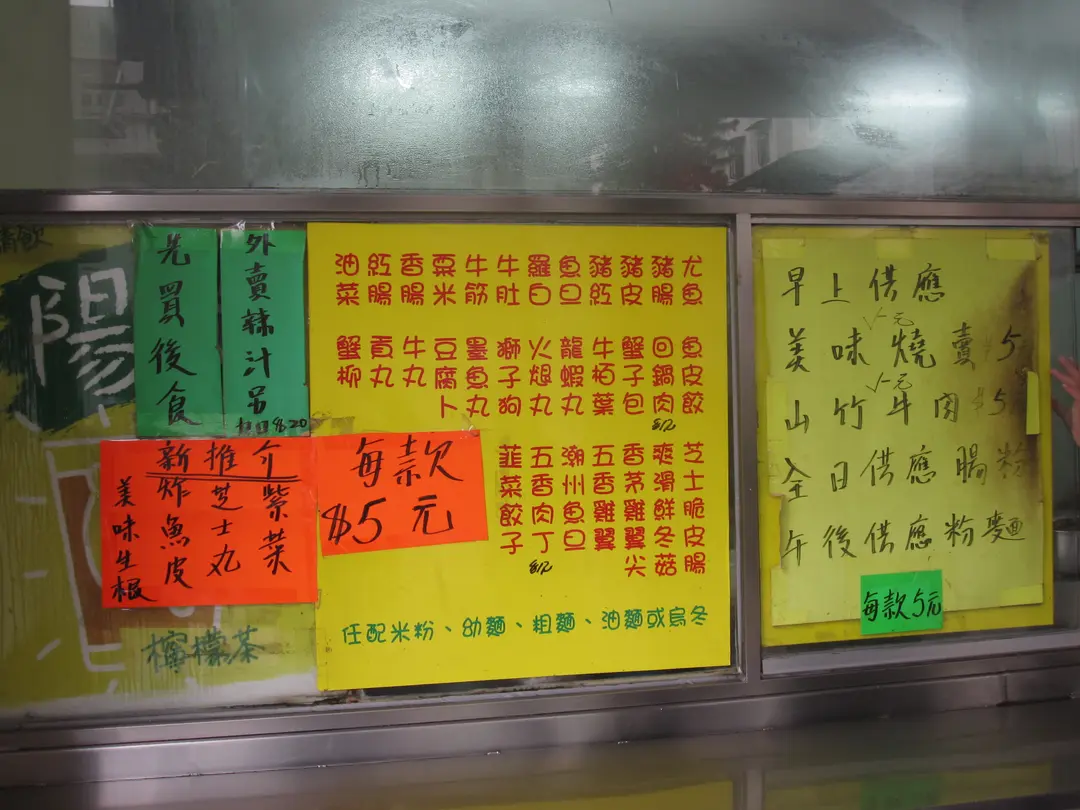 外賣辣汁另
8.20
先買後食
陽
新推介
紫菜
芝士丸
炸魚皮
美味生根
檸檬茶
尤魚
豬腸
豬皮
豬紅
魚旦
羅白
牛肚
牛筋
粟米
香腸
紅腸
油菜
魚皮餃
回鍋肉
蟹子包
牛栢葉
龍蝦丸
火煺丸
獅子狗
墨魚丸
豆腐卜
牛丸
貢丸
蟹柳
芝士脆皮腸
爽滑鮮冬菇
香茅雞翼尖
五香雞翼
潮州魚旦
五香肉丁
韮菜餃子
每款
$5元
任配米粉、幼麵、粗麵、油麵或烏冬
早上供應
美味燒賣 $5
山竹牛肉 $5
全日供應腸粉
午後供應粉麵
每款5元